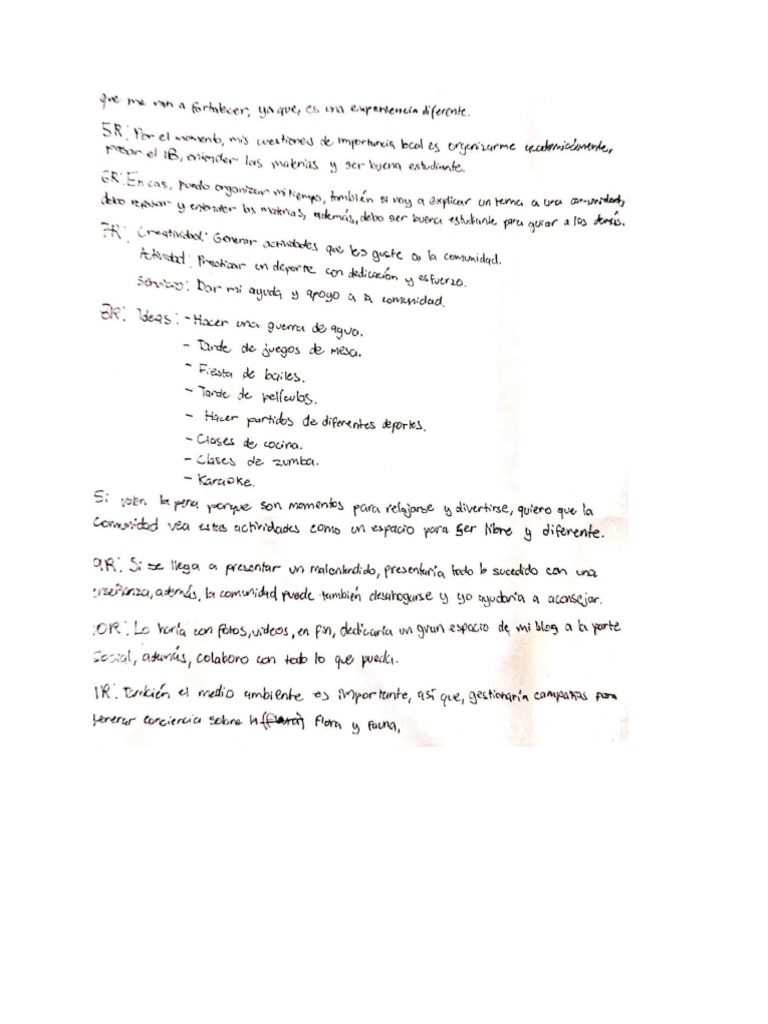 que me van a fortalecer, ya que, es una experiencia diferente.
5R: Por el momento, mis cuestiones de importancia local es organizarme academicamente,
pasar el IB, entender las materias y ser buena estudiante.
6R: En cas, puedo organizar mi tiempo, también si voy a explicar un tema a una comunidad,
debo repasar y entender las materias, además, debo ser buena estudiante para guiar a los demás.
7R: Creatividad: Generar actividades que les guste a la comunidad.
Actividad: Practicar un deporte con dedicación y esfuerzo.
Servicio: Dar mi ayuda y apoyo a la comunidad.
8R: Ideas: - Hacer una guerra de agua.
- Tarde de juegos de mesa.
- Fiesta de bailes.
- Tarde de películas.
- Hacer partidos de diferentes deportes.
- Clases de cocina.
- Clases de zumba.
- Karaoke.
Si valen la pena porque son momentos para relajarse y divertirse, quiero que la
comunidad vea estas actividades como un espacio para ser libre y diferente.
9R: Si se llega a presentar un malentendido, presentaría todo lo sucedido con una
enseñanza, además, la comunidad puede también desahogarse y yo ayudaría a aconsejar.
0R: Lo haría con fotos, videos, en fin, dedicaría un gran espacio de mi blog a la parte
social, además, colaboro con todo lo que pueda.
1R: También el medio ambiente es importante, así que, gestionaría campañas para
generar conciencia sobre la flora y fauna,